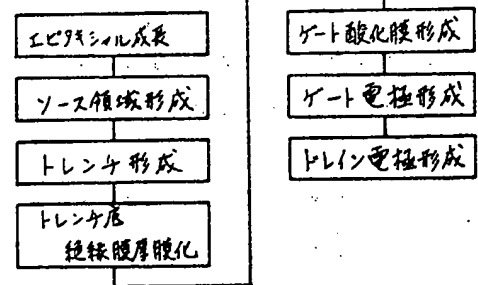 エピタキシャル成長
ソース領域形成
トレンチ形成
トレンチ底
絶縁膜厚膜化
ゲート酸化膜形成
ゲート電極形成
ドレイン電極形成